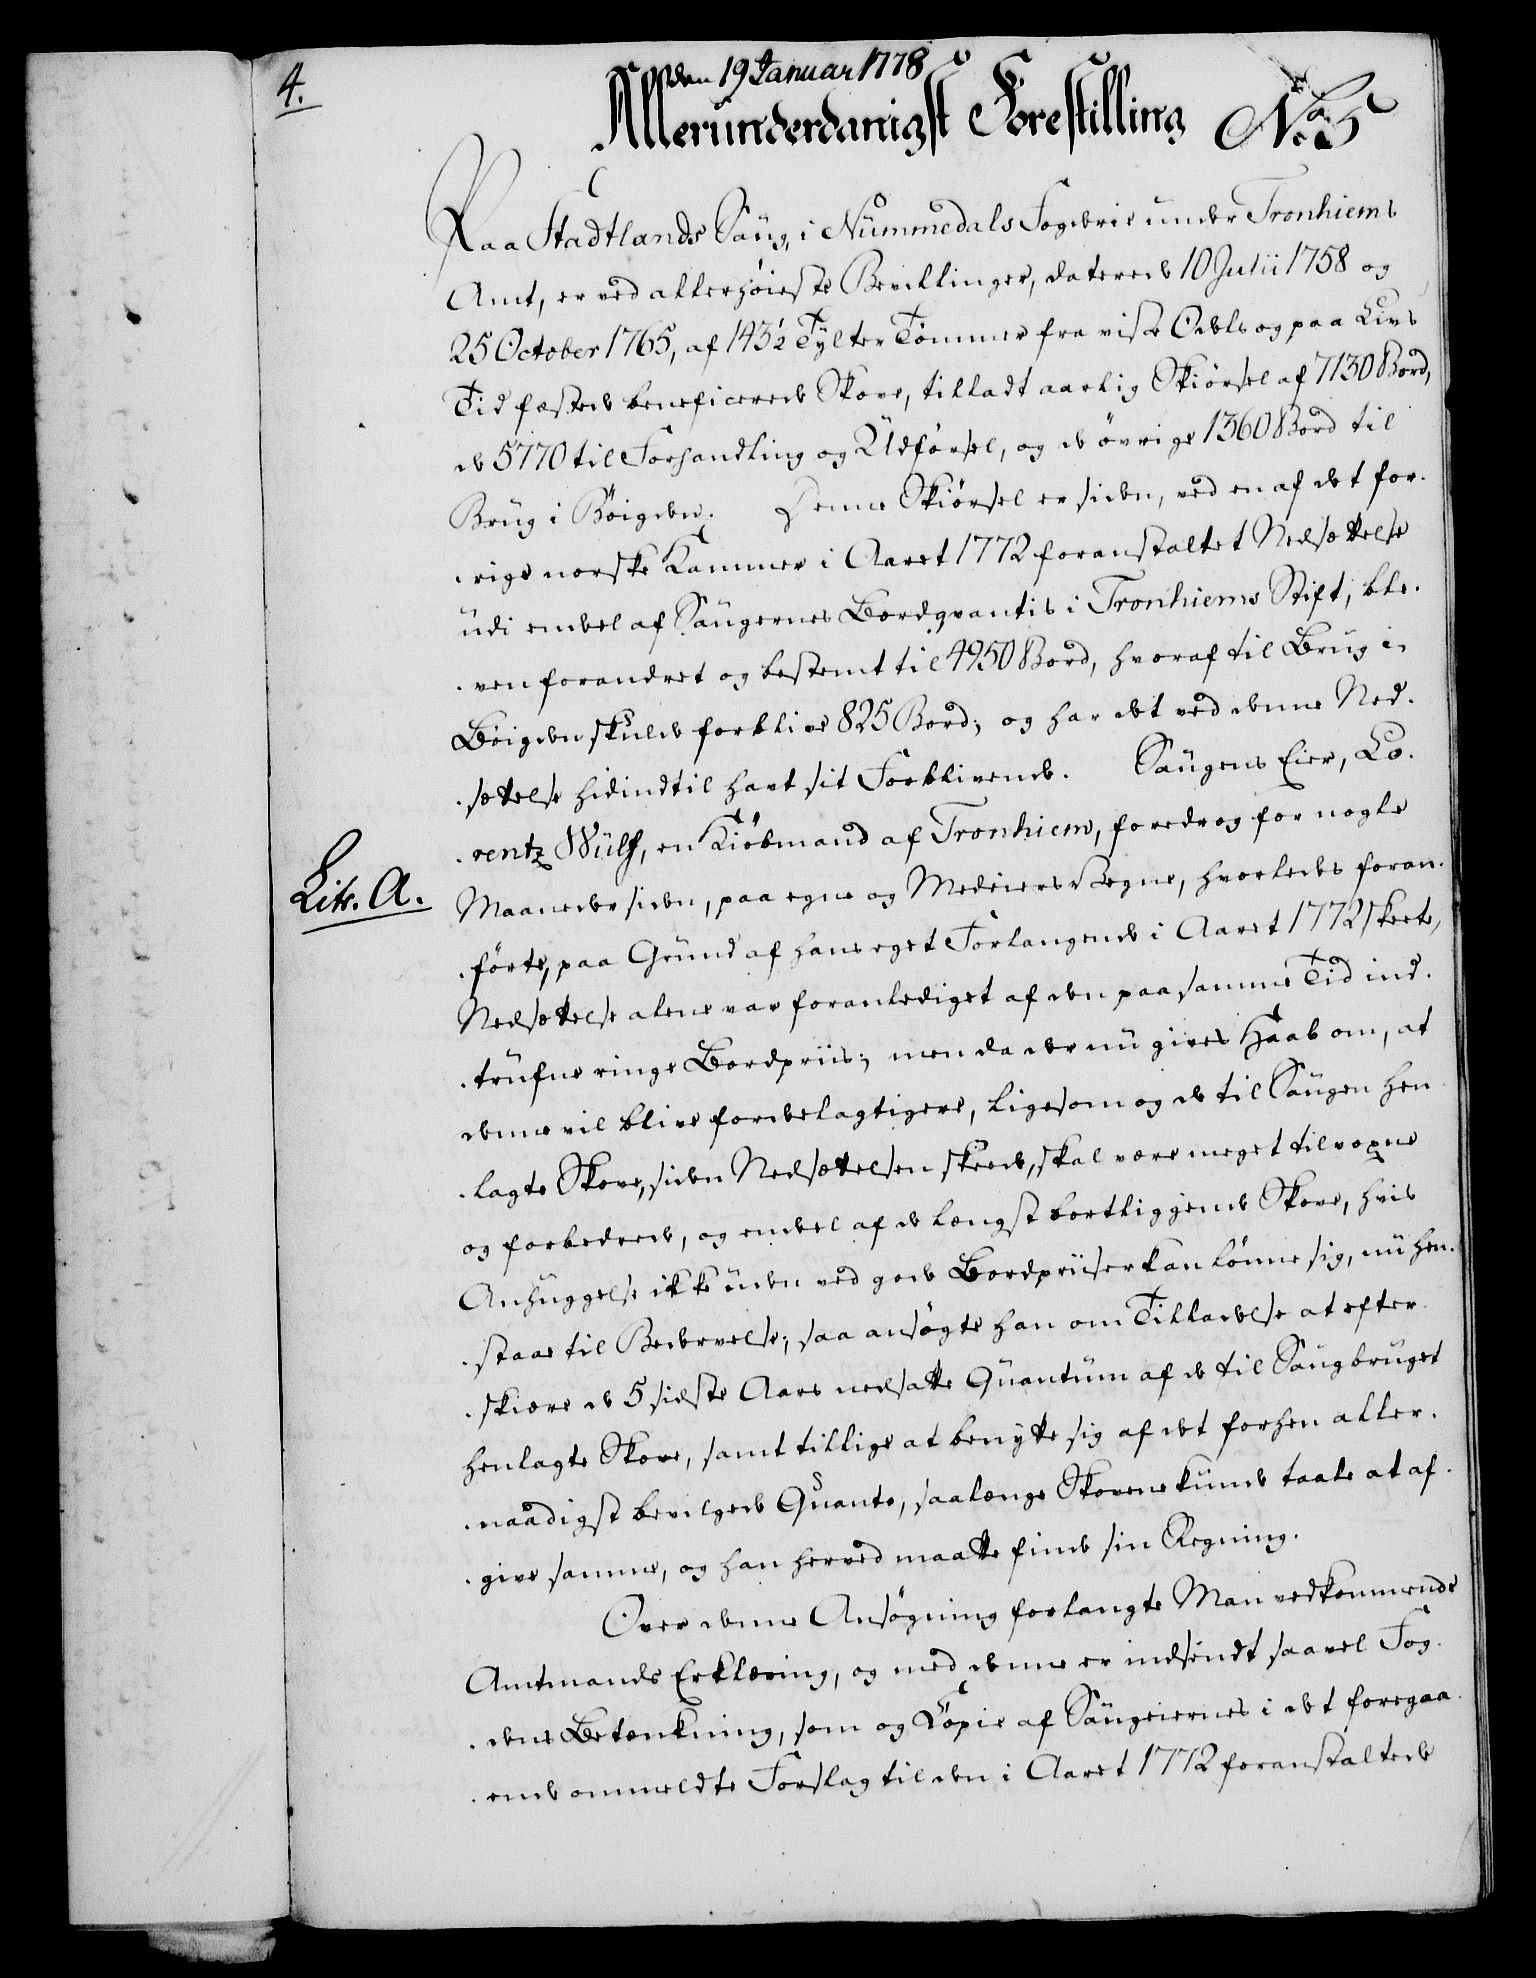 4.
den 19 Januar 1778
Allerunderdanigst Forestilling No 5
Paa Stadtlands Saug, i Nummedals Fogderie under Tronhiems
Amt, er ved allerhöieste Bevillinger, daterede 10 Julii 1758 og
25 October 1765, af 143½ Tylter Tömmer fra visse Odels og paa Livs
Tid fæstede beneficerede Skove, tilladt aarlig Skiörsel af 7130 Bord,
de 5770 til Forhandling og Udförsel, og de övrige 1360 Bord til
Brug i Böigden. Denne Skiörsel er siden, ved en af det for-
-rige norske Kammer i Aaret 1772 foranstaltet Nedsættelse
udi endeel af Saugernes Bordqvantis i Tronhiems Stift, ble-
-ven forandret og bestemt til 4950 Bord, hvoraf til Brug i
Böigden skulde forblive 825 Bord; og har det ved denne Ned-
-sættelse hidindtil havt sit Forblivende. Saugens Eier, Lo-
-rentz Wülf, en Kiöbmand af Tronhiem, foredrog for nogle
Lit. A.
Maaneder siden, paa egne og Medeieres Vegne, hvorledes foran-
-förte, paa Grund af hans eget Forlangende i Aaret 1772 skeete,
Nedsættelse alene var foranlediget af den paa samme Tid ind-
-trufne ringe Bordpriis; men da der nu gives Haab om, at
denne vil blive fordeelagtigere, ligesom og de til Saugen hen-
-lagte Skove, siden Nedsættelsen skeede, skal være meget tilvoxne
og forbedrede, og endeel af de længst bortliggende Skove, hvis
Anhuggelse ikke uden ved gode Bordpriiser kan lönne sig, nu hen-
-staae til Bedervelse; saa ansögte han om Tilladelse at efter-
-skiære de 5 sidste Aars nedsatte Quantum af de til Saugbruget
henlagte Skove, samt tillige at benytte sig af det forhen aller-
-naadigst bevilgede Quanto, saalænge Skovene kunde taale at af-
-give samme, og han herved maatte finde sin Regning.
Over denne Ansögning forlangte Man vedkommende
Amtmands Erklæring, og med denne er indsendt saavel Fog-
-dens Betænkning, som og Copie af Saugeiernes i det foregaa-
-ende ommeldte Forslag til den i Aaret 1772 foranstaltede